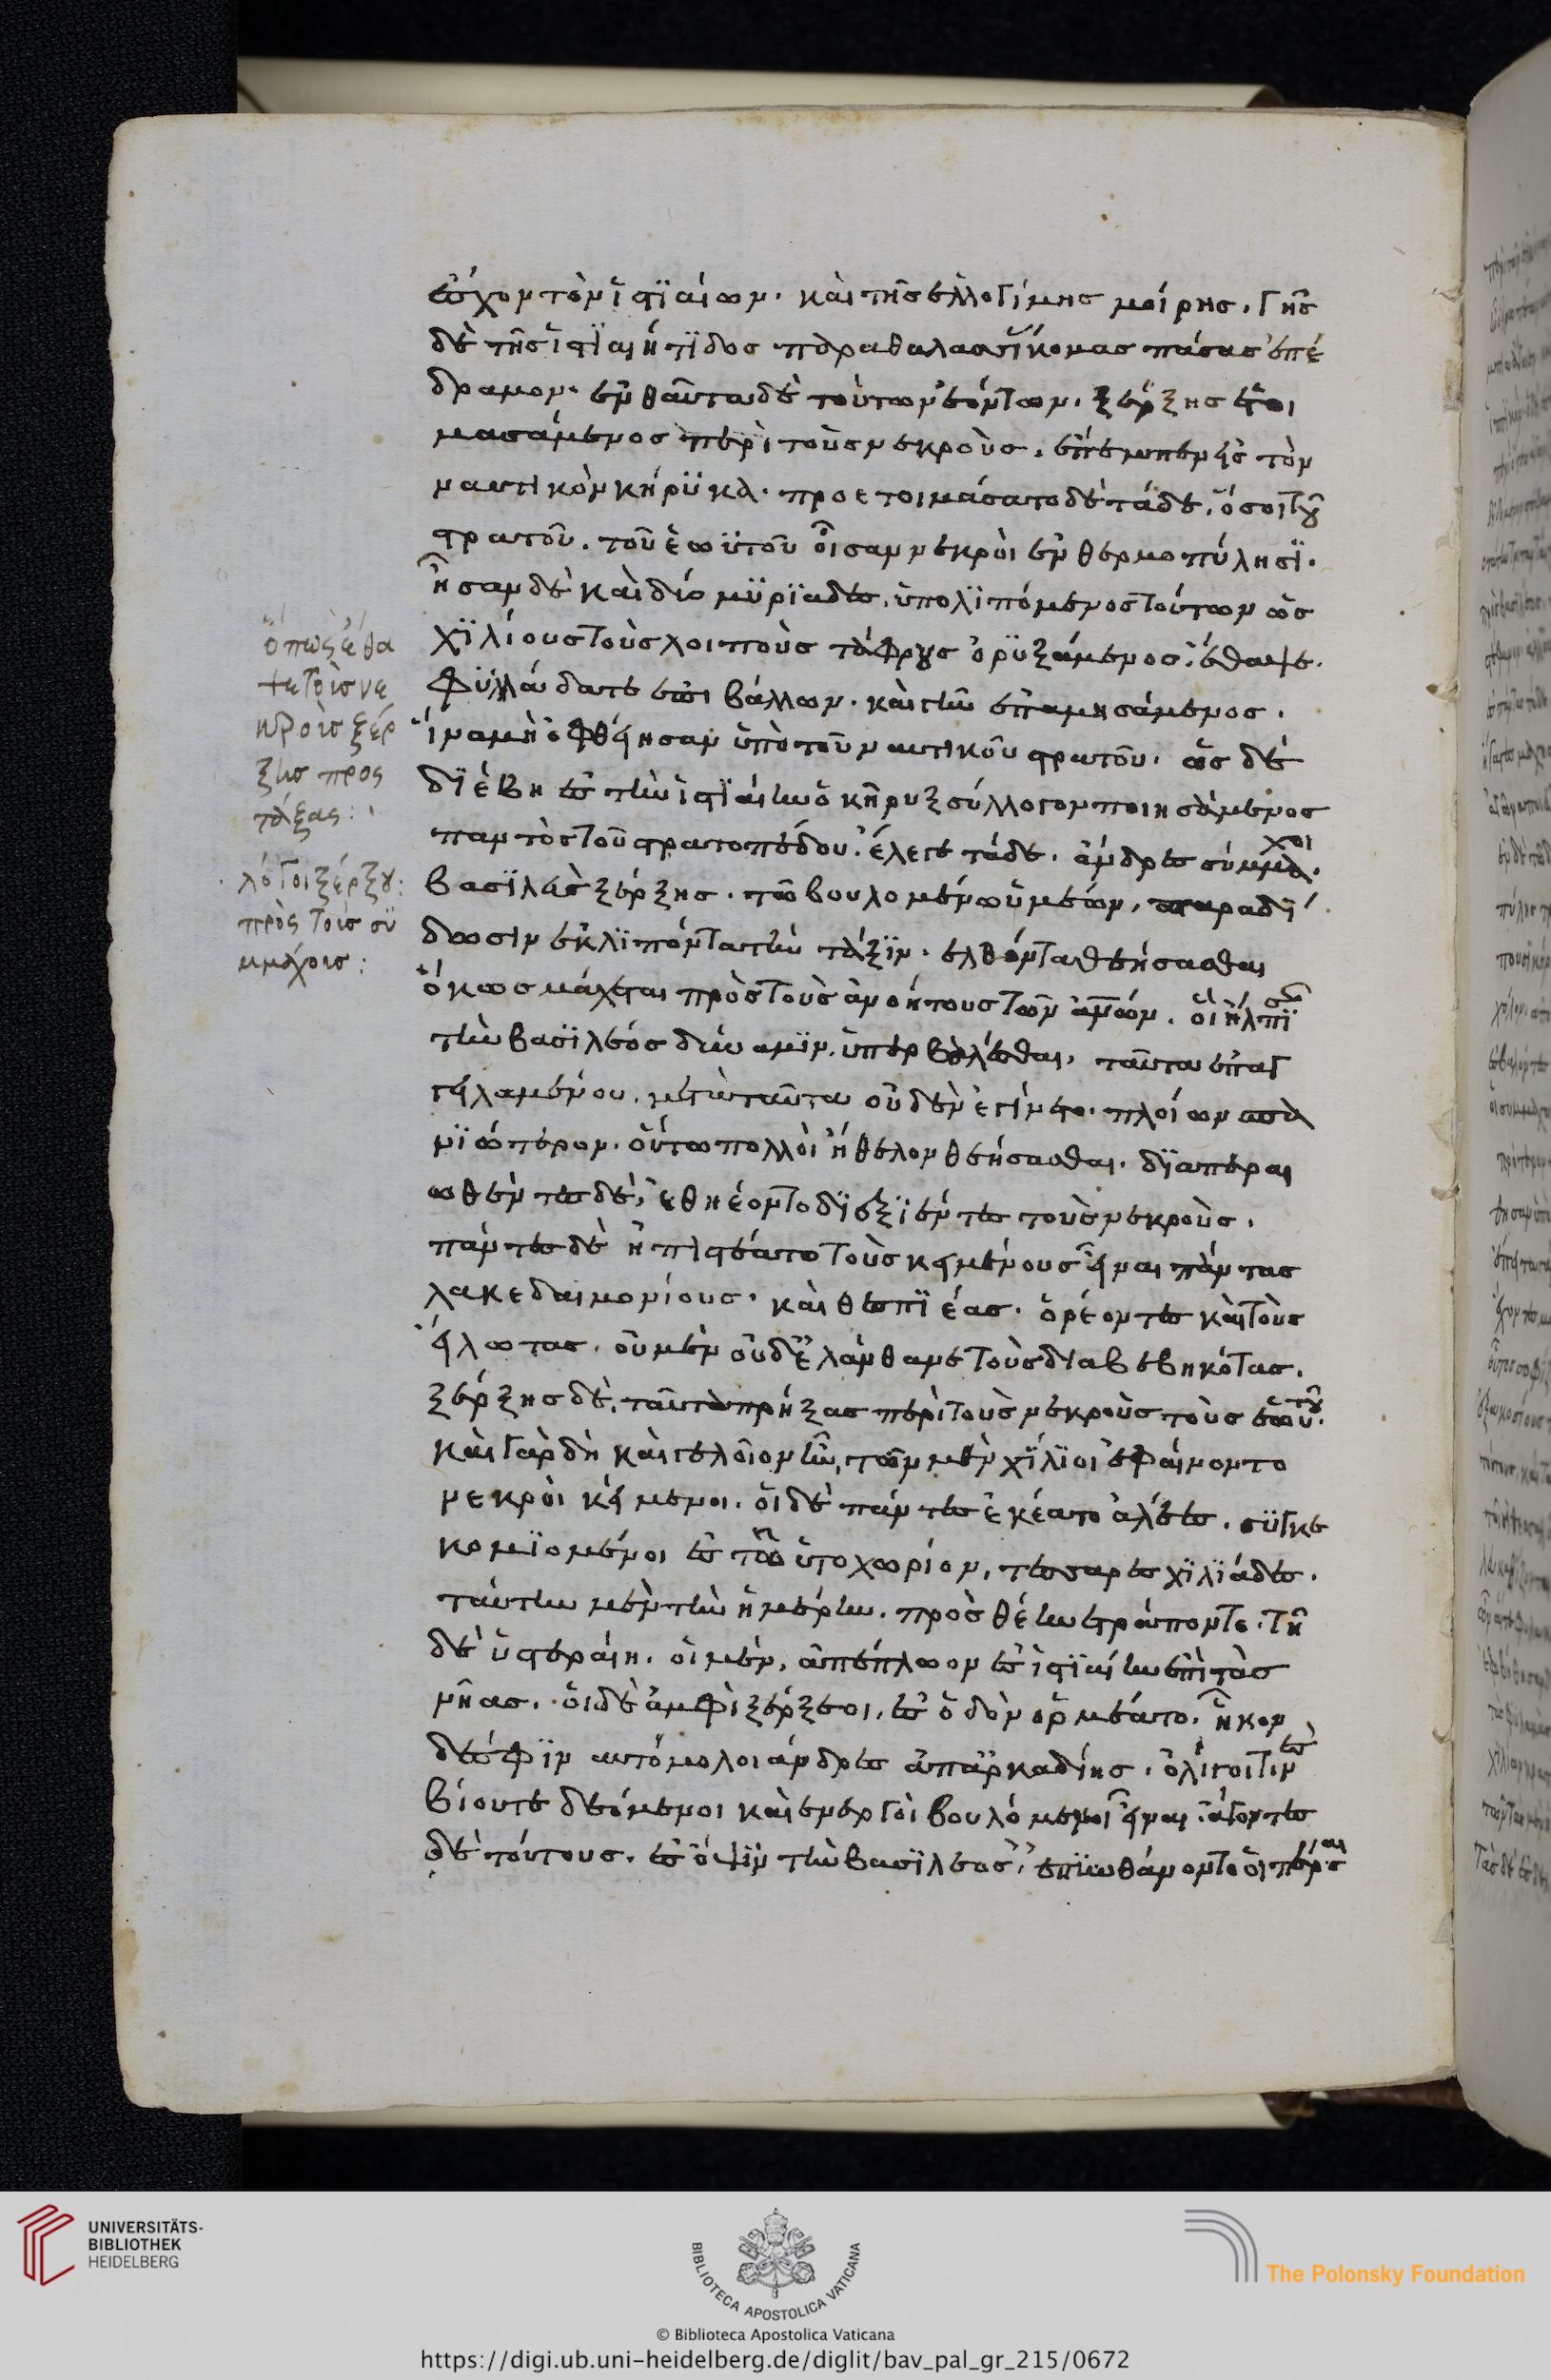 ἔσχον τὸν ἱστϊαίων. καὶ τῆς ἐλλοπίμης μοίρης, γῆς
δὲ τῆς ἱστϊαιήτϊδος παραθαλασσίας κώμας πάσας ἐπέ
δραμον. ἐνθαῦτα δὲ τούτων ἐόντων. ξέρξης ἑτοι
μασάμενος περὶ τοὺς νεκροὺς, ἔπεμπεν ἐς τὸν
ναυτικὸν κήρϋκα. προετοιμάσατο δὲ τάδε, ὅσοι τοῦ
στρατοῦ. τοῦ ἑωϋτοῦ ἦσαν νεκροὶ ἐν θερμοπύλησϊ.
ἦσαν δὲ καὶ δύο μϋρϊάδες, ὑπολϊπόμενος τούτων ὡς
χϊλίους τοὺς λοιποὺς τάφρους ὀρϋξάμενος. ἔθαψε.
φυλλάδα τε ἐπιβάλλων. καὶ γῆν ἐπαμησάμενος.
ἵνα μὴ ὀφθείησαν ὑπὸ τοῦ ναυτικοῦ στρατοῦ. ὡς δὲ
δϊέβη ἐς τὴν ἱστϊαίην ὁ κῆρυξ σύλλογον ποιησάμενος
παντὸς τοῦ στρατοπέδου. ἔλεγε τάδε. ἄνδρες σύμμαχοι.
βασϊλεὺς ξέρξης. τῶ βουλομένω ὑμέων, παραδϊ
δωσιν ἐκλϊπόντα τὴν τάξϊν. ἐλθόντα θεήσασθαι
ὅκως μάχεται πρὸς τοὺς ἀνοήτους τῶν ἀνων. οἳ ἤλπϊσαν
τὴν βασϊλέος δύναμϊν. ὑπερβαλέεσθαι. ταῦτα ἐπαγ
γειλαμένου. μετὰ ταῦτα οὐδὲν ἐγίνετο. πλοίων σπα
νϊώτερον. οὕτω πολλοὶ ἤθελον θεήσασθαι. δϊαπεραι
ωθέντες δὲ, ἐθηέοντο δϊεξϊόντες τοὺς νεκροὺς.
πάντες δὲ ἠπιστέατο τοὺς κειμένους εἶναι πάντας
λακεδαιμονίους. καὶ θεσπϊέας. ὀρέοντες καὶ τοὺς
εἵλωτας. οὐ μὲν οὐδ' ἐλάνθανε τοὺς διαβεβηκότας.
ξέρξης δὲ, ταῦτα πρήξας περὶ τοὺς νεκροὺς τοὺς ἑωυτοῦ.
καὶ γὰρ δὴ καὶ γελοῖον ἦν, τῶν μὲν χίλϊοι ἐφαίνοντο
νεκροὶ κείμενοι. οἱ δὲ πάντες ἐκέατο ἁλέες. σϋγκε
κομϊσμένοι ἐς τὠυτὸ χωρίον, τεσσαρες χϊλϊάδες.
ταύτην μὲν τὴν ἡμέρην. πρὸς θέην ἐτράποντο. τῆ
δὲ ὑστεραίη. οἱ μὲν, ἀπέπλωον ἐς ἱστϊαίην ἐπὶ τὰς
νῆας. οἱ δὲ ἀμφὶ ξέρξεοι, ἐς ὁδὸν ὁρμέατο. ἧκον
δέ σφϊν αὐτόμολοι ἄνδρες ἀπ' ἀρκαδίης. ὀλίγοι τινὲς
βίου τε δεόμενοι καὶ ἐνεργοὶ βουλόμενοι εἶναι. ἄγοντες
δὲ τούτους. ἐς ὄψϊν τὴν βασϊλέος, ἐπϋνθάνοντο οἱ πέρσαι
ὅπως ἔθα
πτε τοὺς νε
κροὺς ξέρ
ξης προς
τάξας:
λόγοι ξέρξου:
πρὸς τοὺς συ
μμάχους:
UNIVERSITÄTS-
BIBLIOTHEK
HEIDELBERG
BIBLIOTECA APOSTOLICA VATICANA
The Polonsky Foundation
© Biblioteca Apostolica Vaticana
https://digi.ub.uni-heidelberg.de/diglit/bav_pal_gr_215/0672